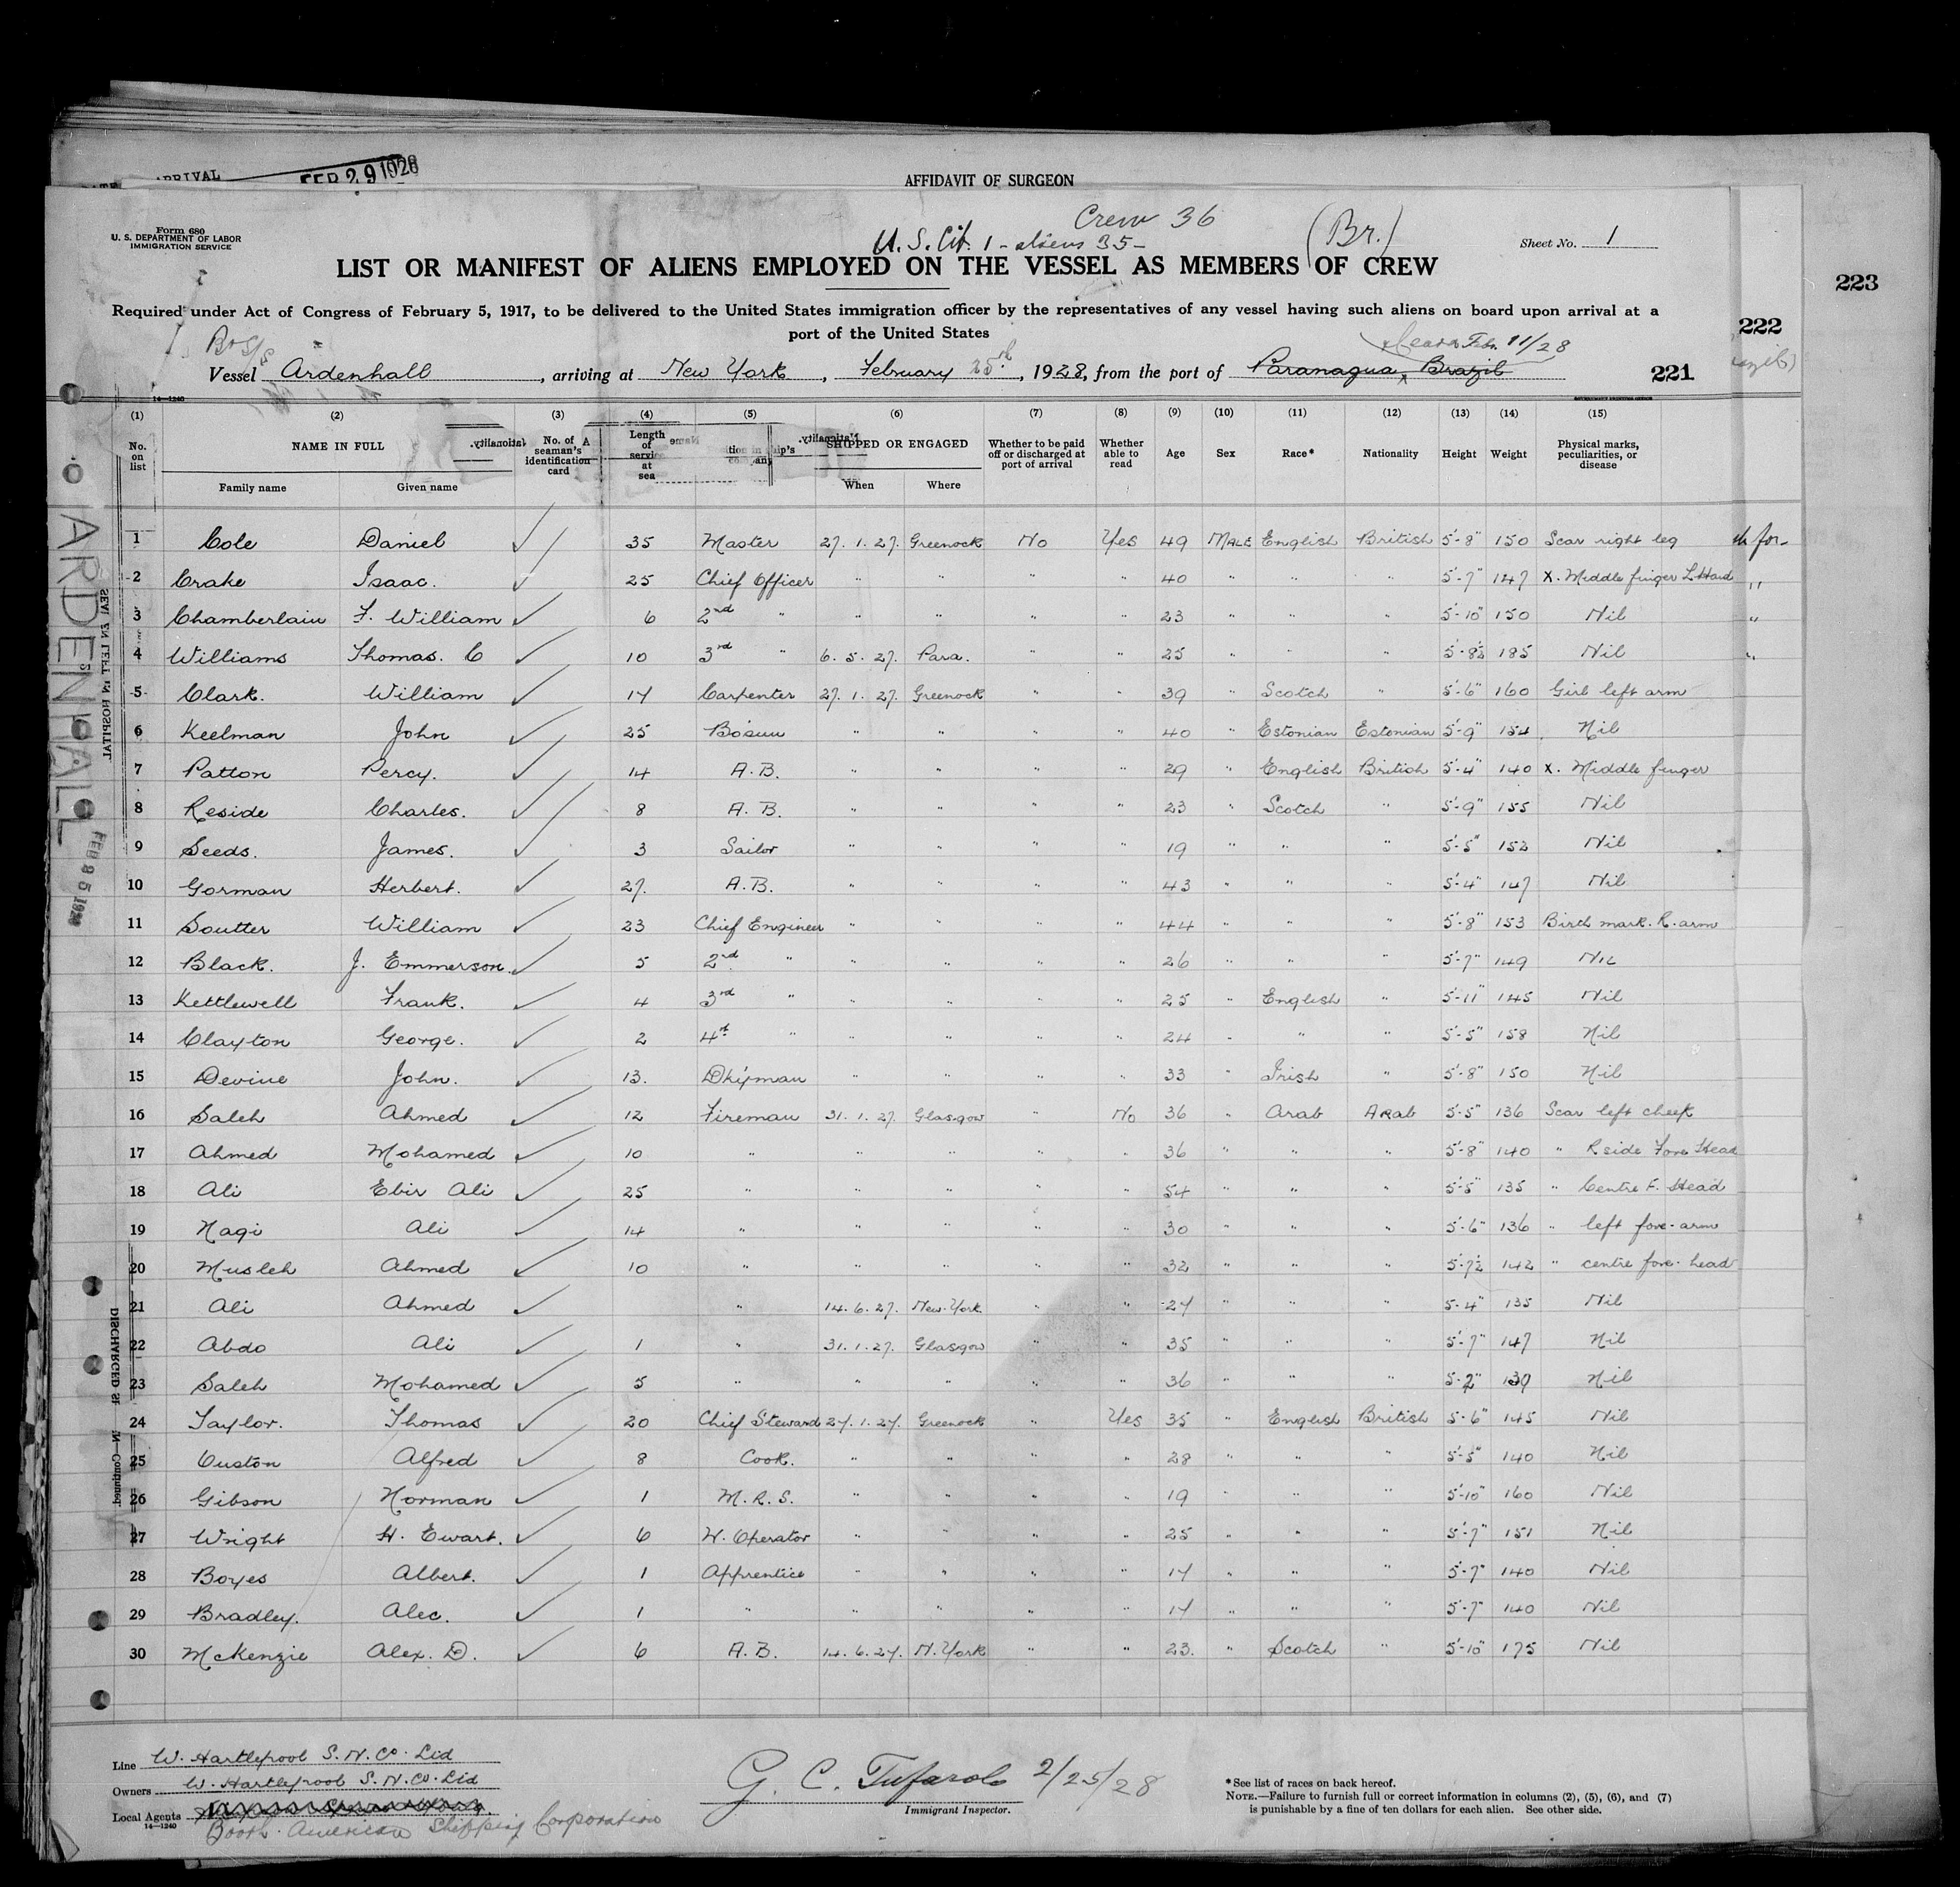 ARRIVAL FEB 29 1928
AFFIDAVIT OF SURGEON
Crew 36
U.S. Cit. 1 - aliens 35 -
(Br.)
Form 680
U. S. DEPARTMENT OF LABOR
IMMIGRATION SERVICE
Sheet No. 1
LIST OR MANIFEST OF ALIENS EMPLOYED ON THE VESSEL AS MEMBERS OF CREW
223
Required under Act of Congress of February 5, 1917, to be delivered to the United States immigration officer by the representatives of any vessel having such aliens on board upon arrival at a
port of the United States
222
Br S/S
Feb. 11/28
Vessel Ardenhall, arriving at New York, February 25th, 1928, from the port of Paranagua, Brazil
221
14—1240
(1) (2) (3) (4) (5) (6) (7) (8) (9) (10) (11) (12) (13) (14) (15)
No. on list NAME IN FULL No. of seaman's identification card Length of service at sea SHIPPED OR ENGAGED Whether to be paid off or discharged at port of arrival Whether able to read Age Sex Race* Nationality Height Weight Physical marks, peculiarities, or disease
Family name Given name When Where
1 Cole Daniel 35 Master 27.1.27. Greenock No Yes 49 MALE English British 5'-8" 150 Scar right leg
2 Crake Isaac. 25 Chief Officer " " " " 40 " " " 5'-7" 147 X. Middle finger L. Hand
3 Chamberlain F. William 6 2nd " " " " " 23 " " " 5'-10" 150 Nil
4 Williams Thomas. C 10 3rd " 6.5.27. Para. " " 25 " " " 5'-8½ 185 Nil
5 Clark. William 14 Carpenter 27.1.27. Greenock " " 39 " Scotch " 5'-6" 160 Girl left arm
6 Keelman John 25 Bosun " " " " 40 " Estonian Estonian 5'-9" 154 Nil
7 Patton Percy. 14 A.B. " " " " 29 " English British 5'-4" 140 X. Middle finger
8 Reside Charles. 8 A.B. " " " " 23 " Scotch " 5'-9" 155 Nil
9 Seeds. James. 3 Sailor " " " " 19 " " " 5'-5" 152 Nil
10 Gorman Herbert. 27. A.B. " " " " 43 " " " 5'-4" 147 Nil
11 Soutter William 23 Chief Engineer " " " " 44 " " " 5'-8" 153 Birth mark. R. arm
12 Black. J. Emmerson. 5 2nd " " " " " 26 " " " 5'-7" 149 Nil
13 Kettlewell Frank. 4 3rd " " " " " 25 " English " 5'-11" 145 Nil
14 Clayton George. 2 4th " " " " " 24 " " " 5'-5" 158 Nil
15 Devine John. 13. Dkyman " " " " 33 " Irish " 5'-8" 150 Nil
16 Saleh Ahmed 12 Fireman 31.1.27. Glasgow " No 36 " Arab Arab 5'-5" 136 Scar left cheek
17 Ahmed Mohamed 10 " " " " " 36 " " " 5'-8" 140 " R side Fore Head
18 Ali Ebir Ali 25 " " " " " 54 " " " 5'-5" 135 " Centre F. Head
19 Nagi Ali 14 " " " " " 30 " " " 5'-6" 136 " left fore-arm
20 Musleh Ahmed 10 " " " " " 32 " " " 5'-7½ 142 " centre fore-head
21 Ali Ahmed " 14.6.27. New York " " 24 " " " 5-4" 135 Nil
22 Abdo Ali 1 " 31.1.27. Glasgow " " 35 " " " 5'-7" 147 Nil
23 Saleh Mohamed 5 " " " " " 36 " " " 5-2" 139 Nil
24 Taylor. Thomas 20 Chief Steward 27.1.27. Greenock " Yes 35 " English British 5'-6" 145 Nil
25 Custon Alfred 8 Cook. " " " " 28 " " " 5'-5" 140 Nil
26 Gibson Norman 1 M.R.S. " " " " 19 " " " 5'-10" 160 Nil
27 Wright H. Ewart. 6 W. Operator " " " " 25 " " " 5'-7" 151 Nil
28 Boyes Albert. 1 Apprentice " " " " 17 " " " 5'-7" 140 Nil
29 Bradley. Alec. 1 " " " " " 17 " " " 5'-7" 140 Nil
30 McKenzie Alex. D. 6 A.B. 14.6.27. N. York " " 23. " Scotch " 5'-10" 175 Nil
ARDENHALL
FEB 25 1928
Line W. Hartlepool S.N. Co. Ltd
Owners W. Hartlepool S.N. Co. Ltd
Local Agents
14—1240
Booth American Shipping Corporation
G. C. Tufarolo 2/25/28
Immigrant Inspector.
*See list of races on back hereof.
NOTE.—Failure to furnish full or correct information in columns (2), (5), (6), and (7)
is punishable by a fine of ten dollars for each alien. See other side.